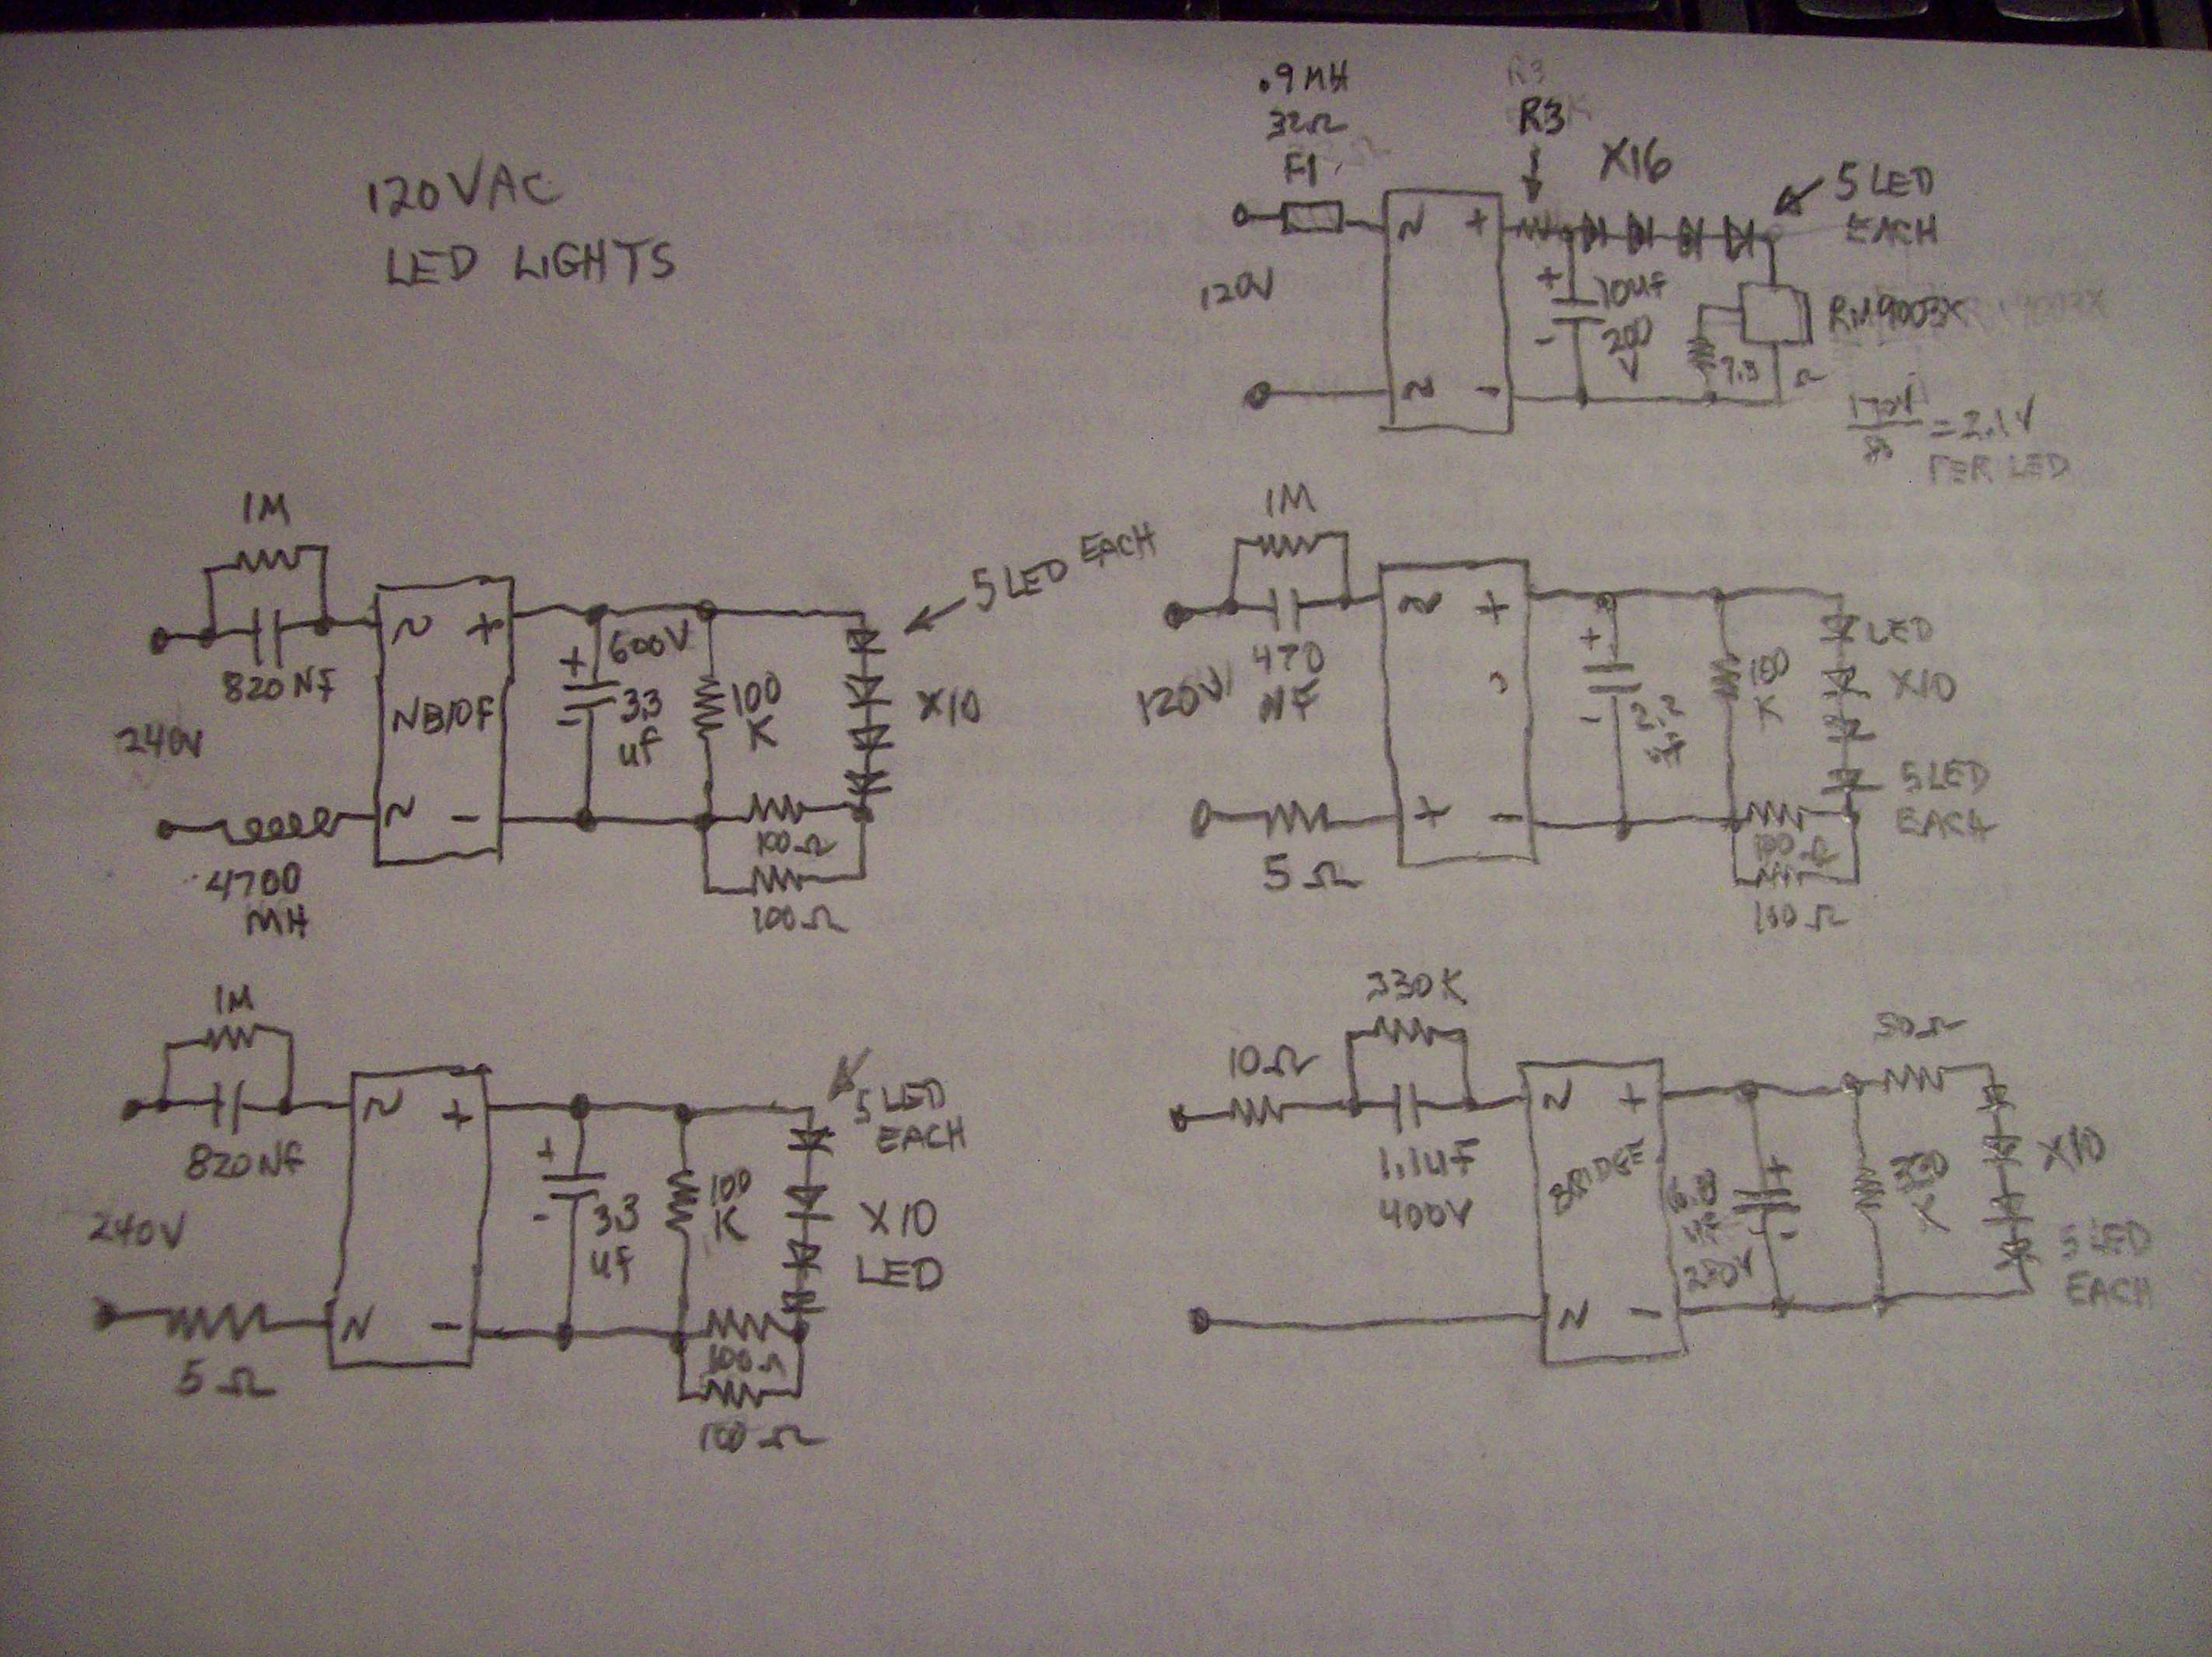 120VAC
LED LIGHTS
.9MH
32Ω
F1
R3
R3
X16
5 LED
EACH
~ +
120V
+ 10UF
200
V
-
RM9003X
7.3 Ω
~ -
170V
80
= 2.1V
PER LED
1M
820NF
240V
4700
MH
~ +
NB10F
~ -
600V
+
33
UF
-
100
K
100Ω
100Ω
5 LED EACH
X10
1M
470
NF
120V
5Ω
~ +
+ -
+
2.2
UF
-
100
K
LED
X10
5 LED
EACH
100Ω
100Ω
1M
820NF
240V
5Ω
~ +
~ -
+
33
UF
-
100
K
5 LED
EACH
X10
LED
100Ω
100Ω
330K
10Ω
1.1UF
400V
~ +
BRIDGE
~ -
+
-
250V
K
50Ω
X10
5 LED
EACH